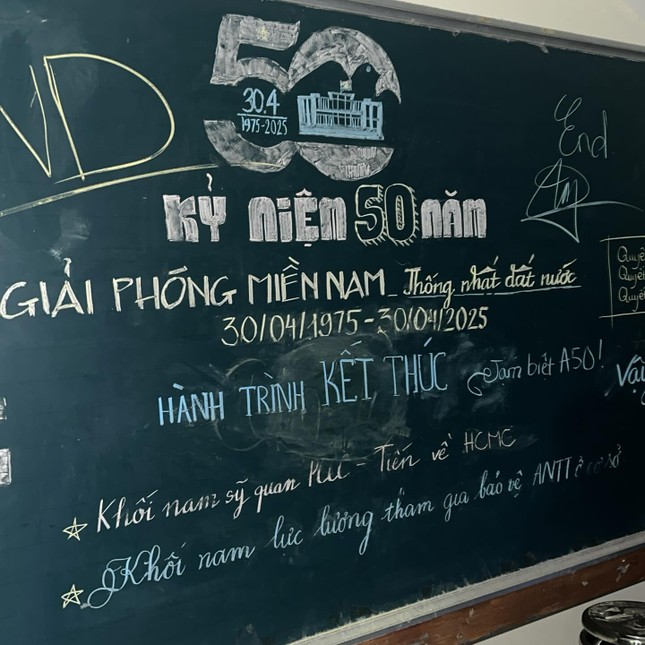 VD
50
30.4
1975-2025
End
KỶ NIỆM 50 NĂM
GIẢI PHÓNG MIỀN NAM _ Thống nhất đất nước
30/04/1975-30/04/2025
Quyế
Quyế
Quyế
HÀNH TRÌNH KẾT THÚC
Tạm biệt A50!
Vậy
☆ Khối nam sỹ quan PCCC - Tiến về HCMC
☆ Khối nam lực lượng tham gia bảo vệ ANTT ở cơ sở